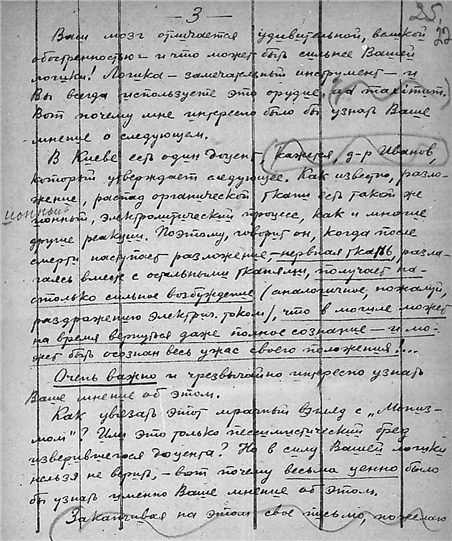 – 3 –
25.
22
Ваш мозг отличается удивительной, великой
обостренностью – и что может быть сильнее Вашей
логики! Логика – замечательный инструмент – и
Вы всегда используете это орудие, ad maximum.
Вот почему мне интересно было бы узнать Ваше
мнение о следующем.
В Киеве есть один доцент, (кажется, д-р Иванов,
который утверждает следующее. Как известно, разло-
жение, распад органической ткани есть такой же
ионный
ионный, электролитический процесс, как и многие
другие реакции. Поэтому, говорит он, когда после
смерти наступает разложение, – нервная ткань, разла-
гаясь вместе с остальными тканями, получает на-
столько сильное возбуждение (аналогичное, пожалуй,
раздражению электрич. током), что в могиле может
на время вернуться даже полное сознание – и мо-
жет быть осознан весь ужас своего положения!...
Очень важно и чрезвычайно интересно узнать
Ваше мнение об этом.
Как увязать этот мрачный взгляд с „Мониз-
мом"? Или это только пессимистический бред
изверившегося доцента? Но в силу Вашей логики
нельзя не верить, – вот почему весьма ценно было
бы узнать именно Ваше мнение об этом.
Заканчивая на этом свое письмо, пожелаю